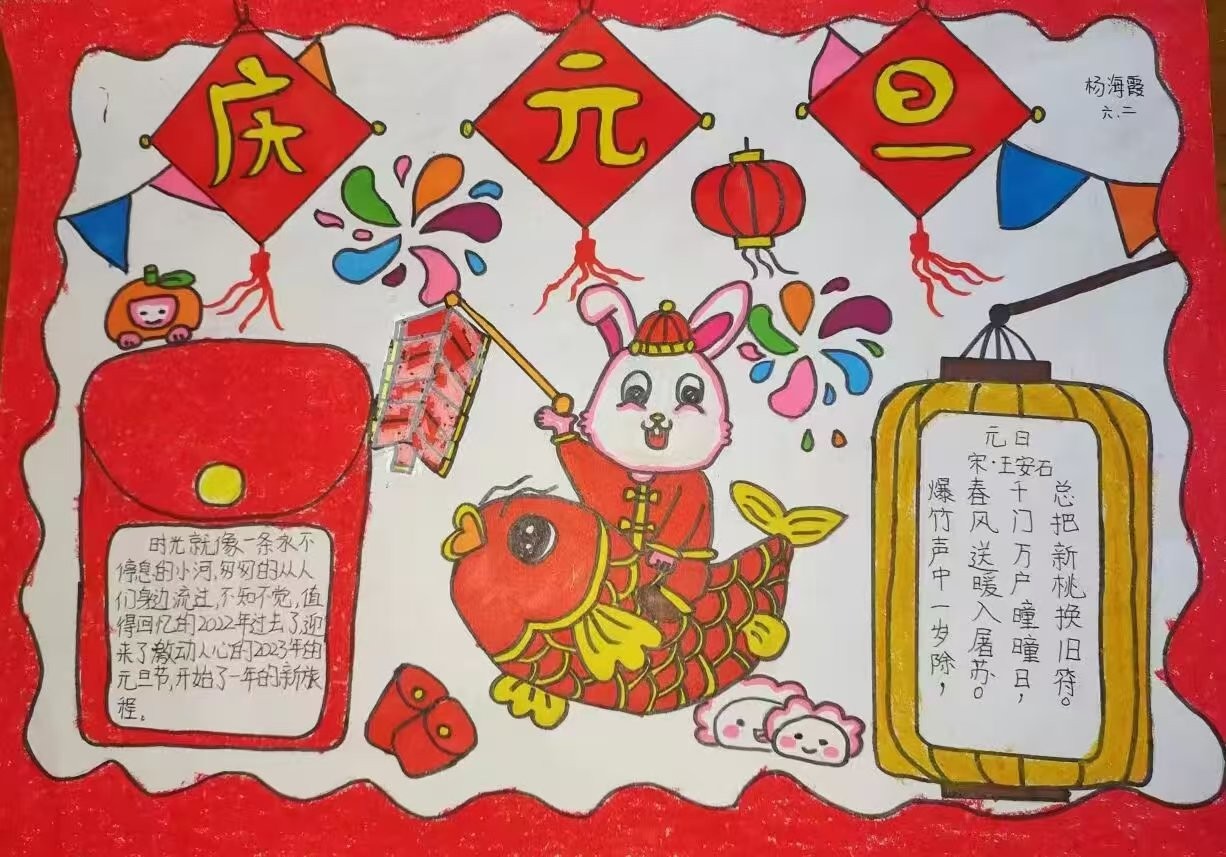 庆元旦
杨海霞
六.二
时光就像一条永不
停息的小河,匆匆的从人
们身边流过,不知不觉,值
得回忆的2022年过去了迎
来了激动人心的2023年的
元旦节,开始了一年的新旅
程。
元日
宋·王安石
爆竹声中一岁除,
春风送暖入屠苏。
千门万户瞳瞳日,
总把新桃换旧符。